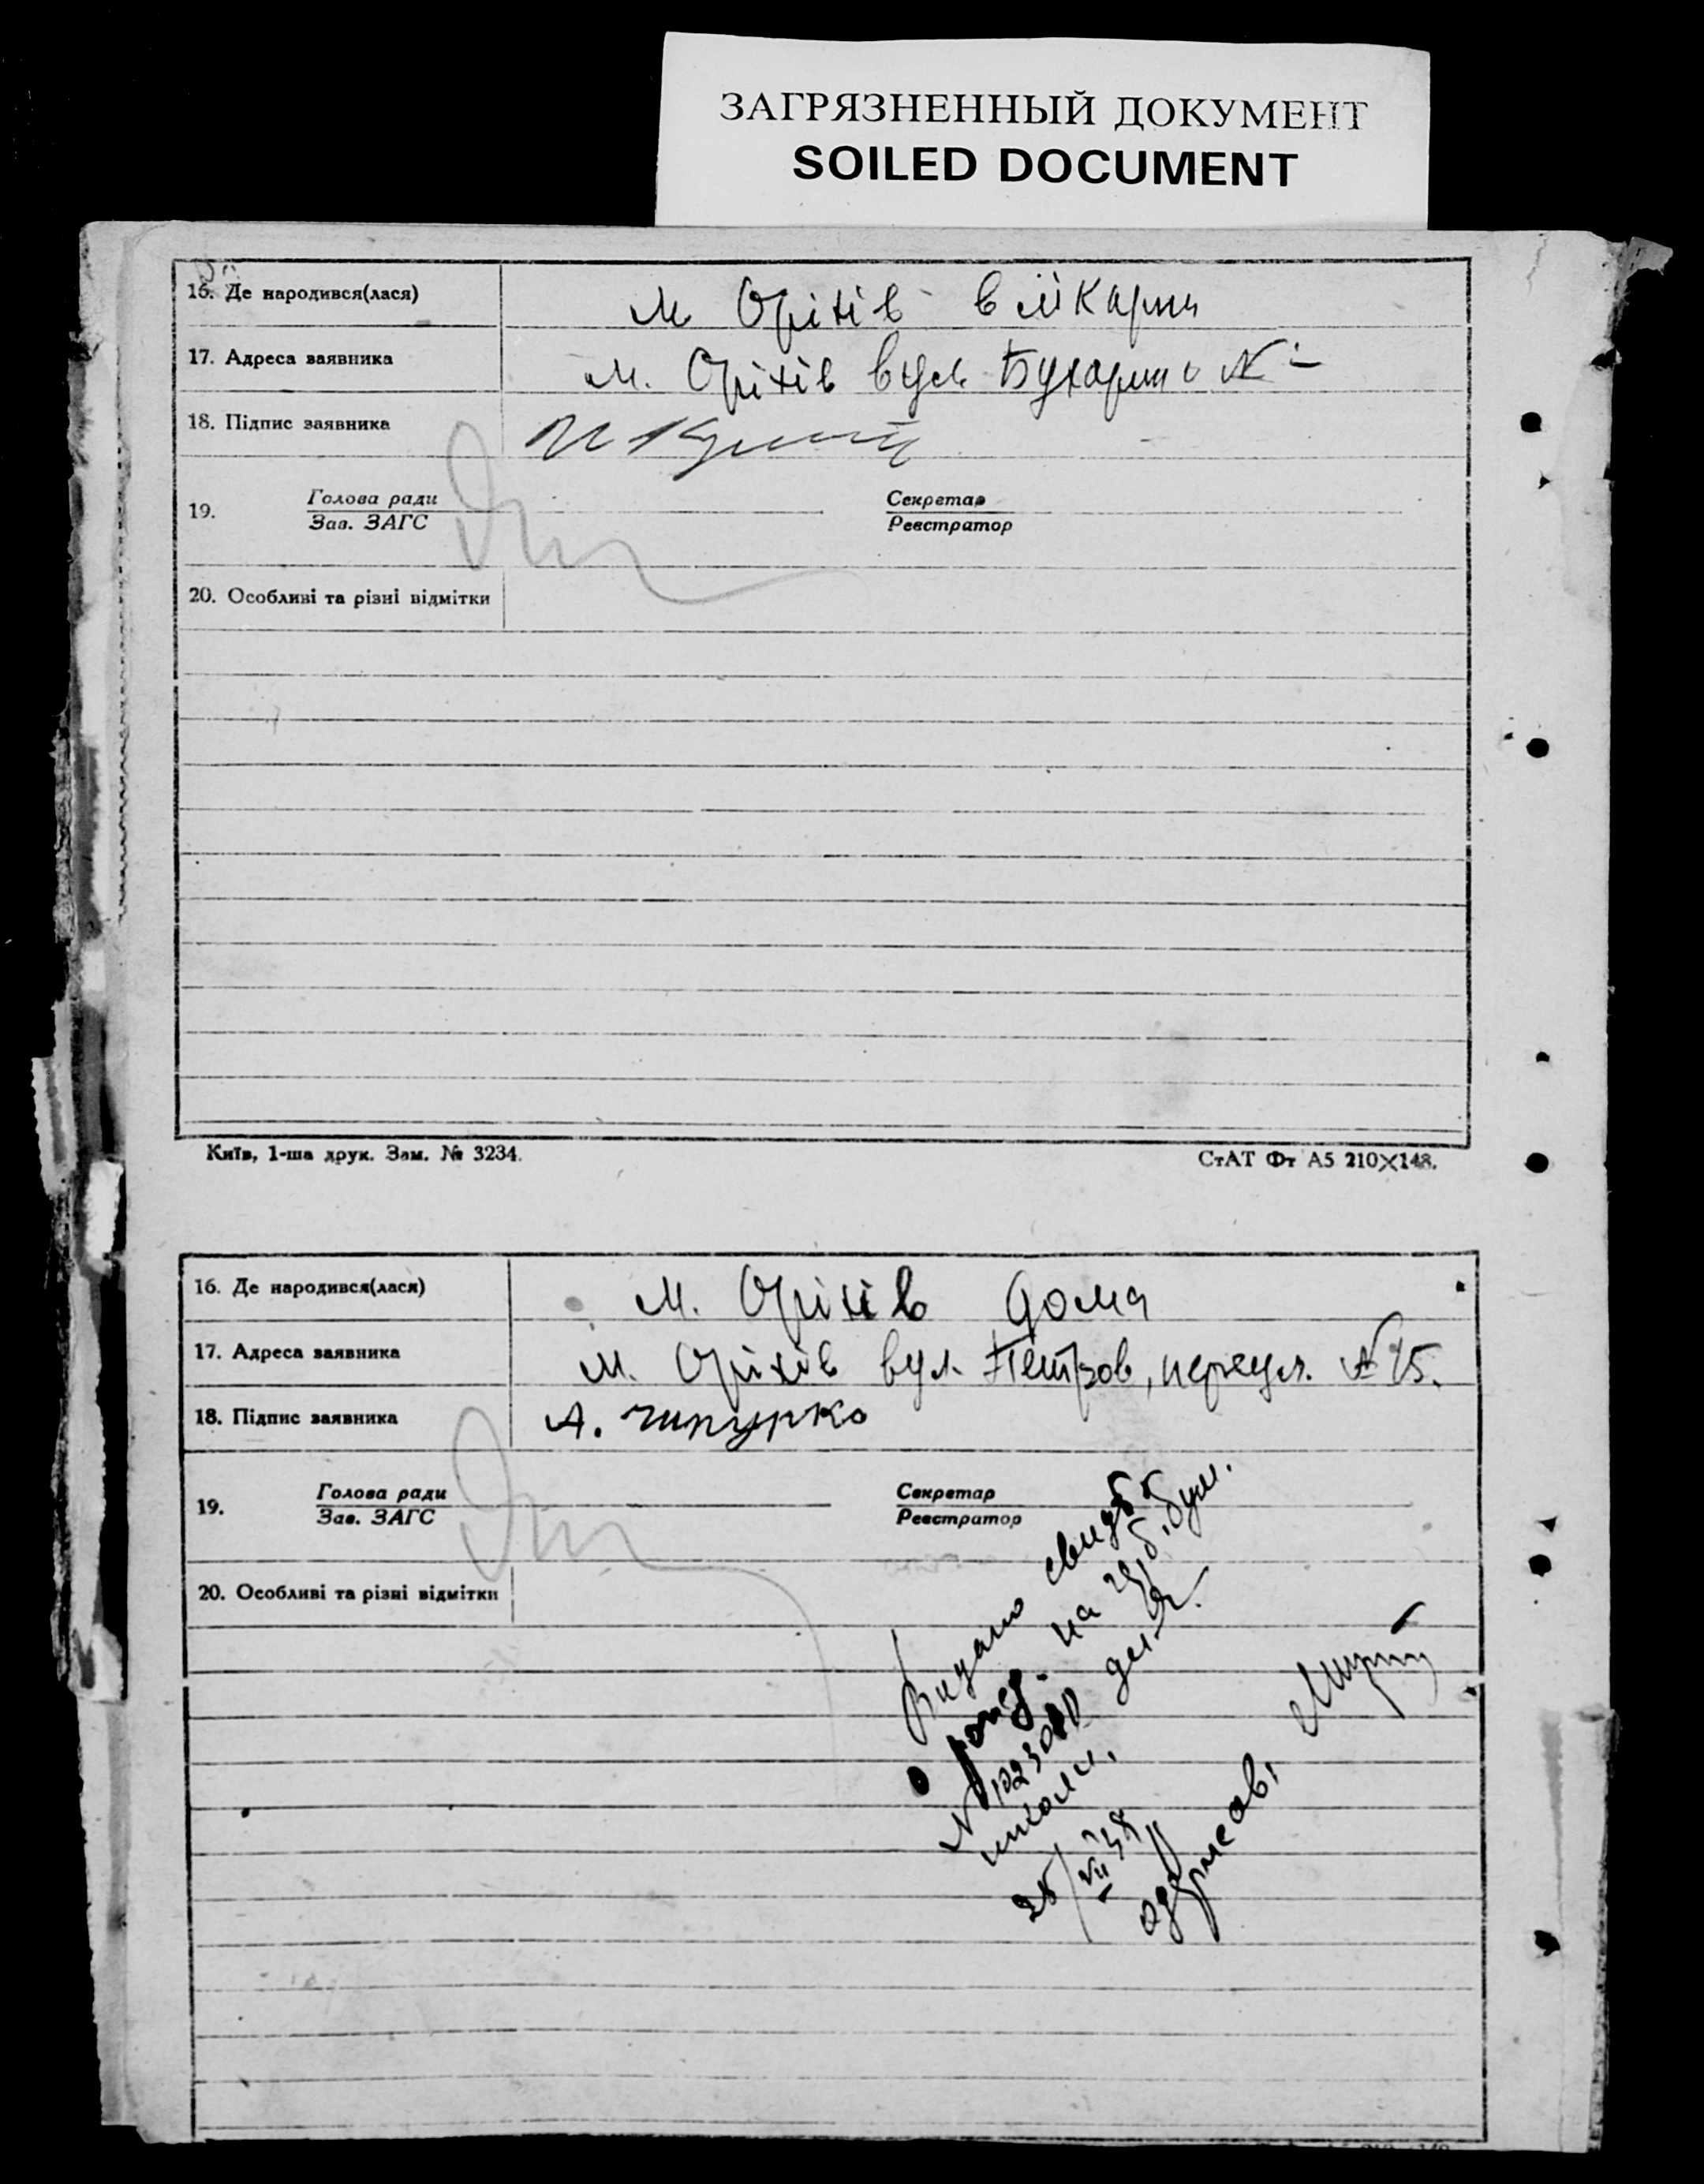 ЗАГРЯЗНЕННЫЙ ДОКУМЕНТ
SOILED DOCUMENT
16. Де народився(лася) м Оріхів в лікарні
17. Адреса заявника м. Оріхів вул. Бухарин №-
18. Підпис заявника
19. Голова ради Секретар
Зав. ЗАГС Реєстратор
20. Особливі та різні відмітки
Київ, 1-ша друк. Зам. № 3234.
СтАТ Фт А5 210×148.
16. Де народився(лася) м. Оріхів дома
17. Адреса заявника м. Оріхів вул. Петров, переул. № 15.
18. Підпис заявника А. Чипурко
19. Голова ради Секретар
Зав. ЗАГС Реєстратор
20. Особливі та різні відмітки
Видано свид
о на
№
школи.
25/VII